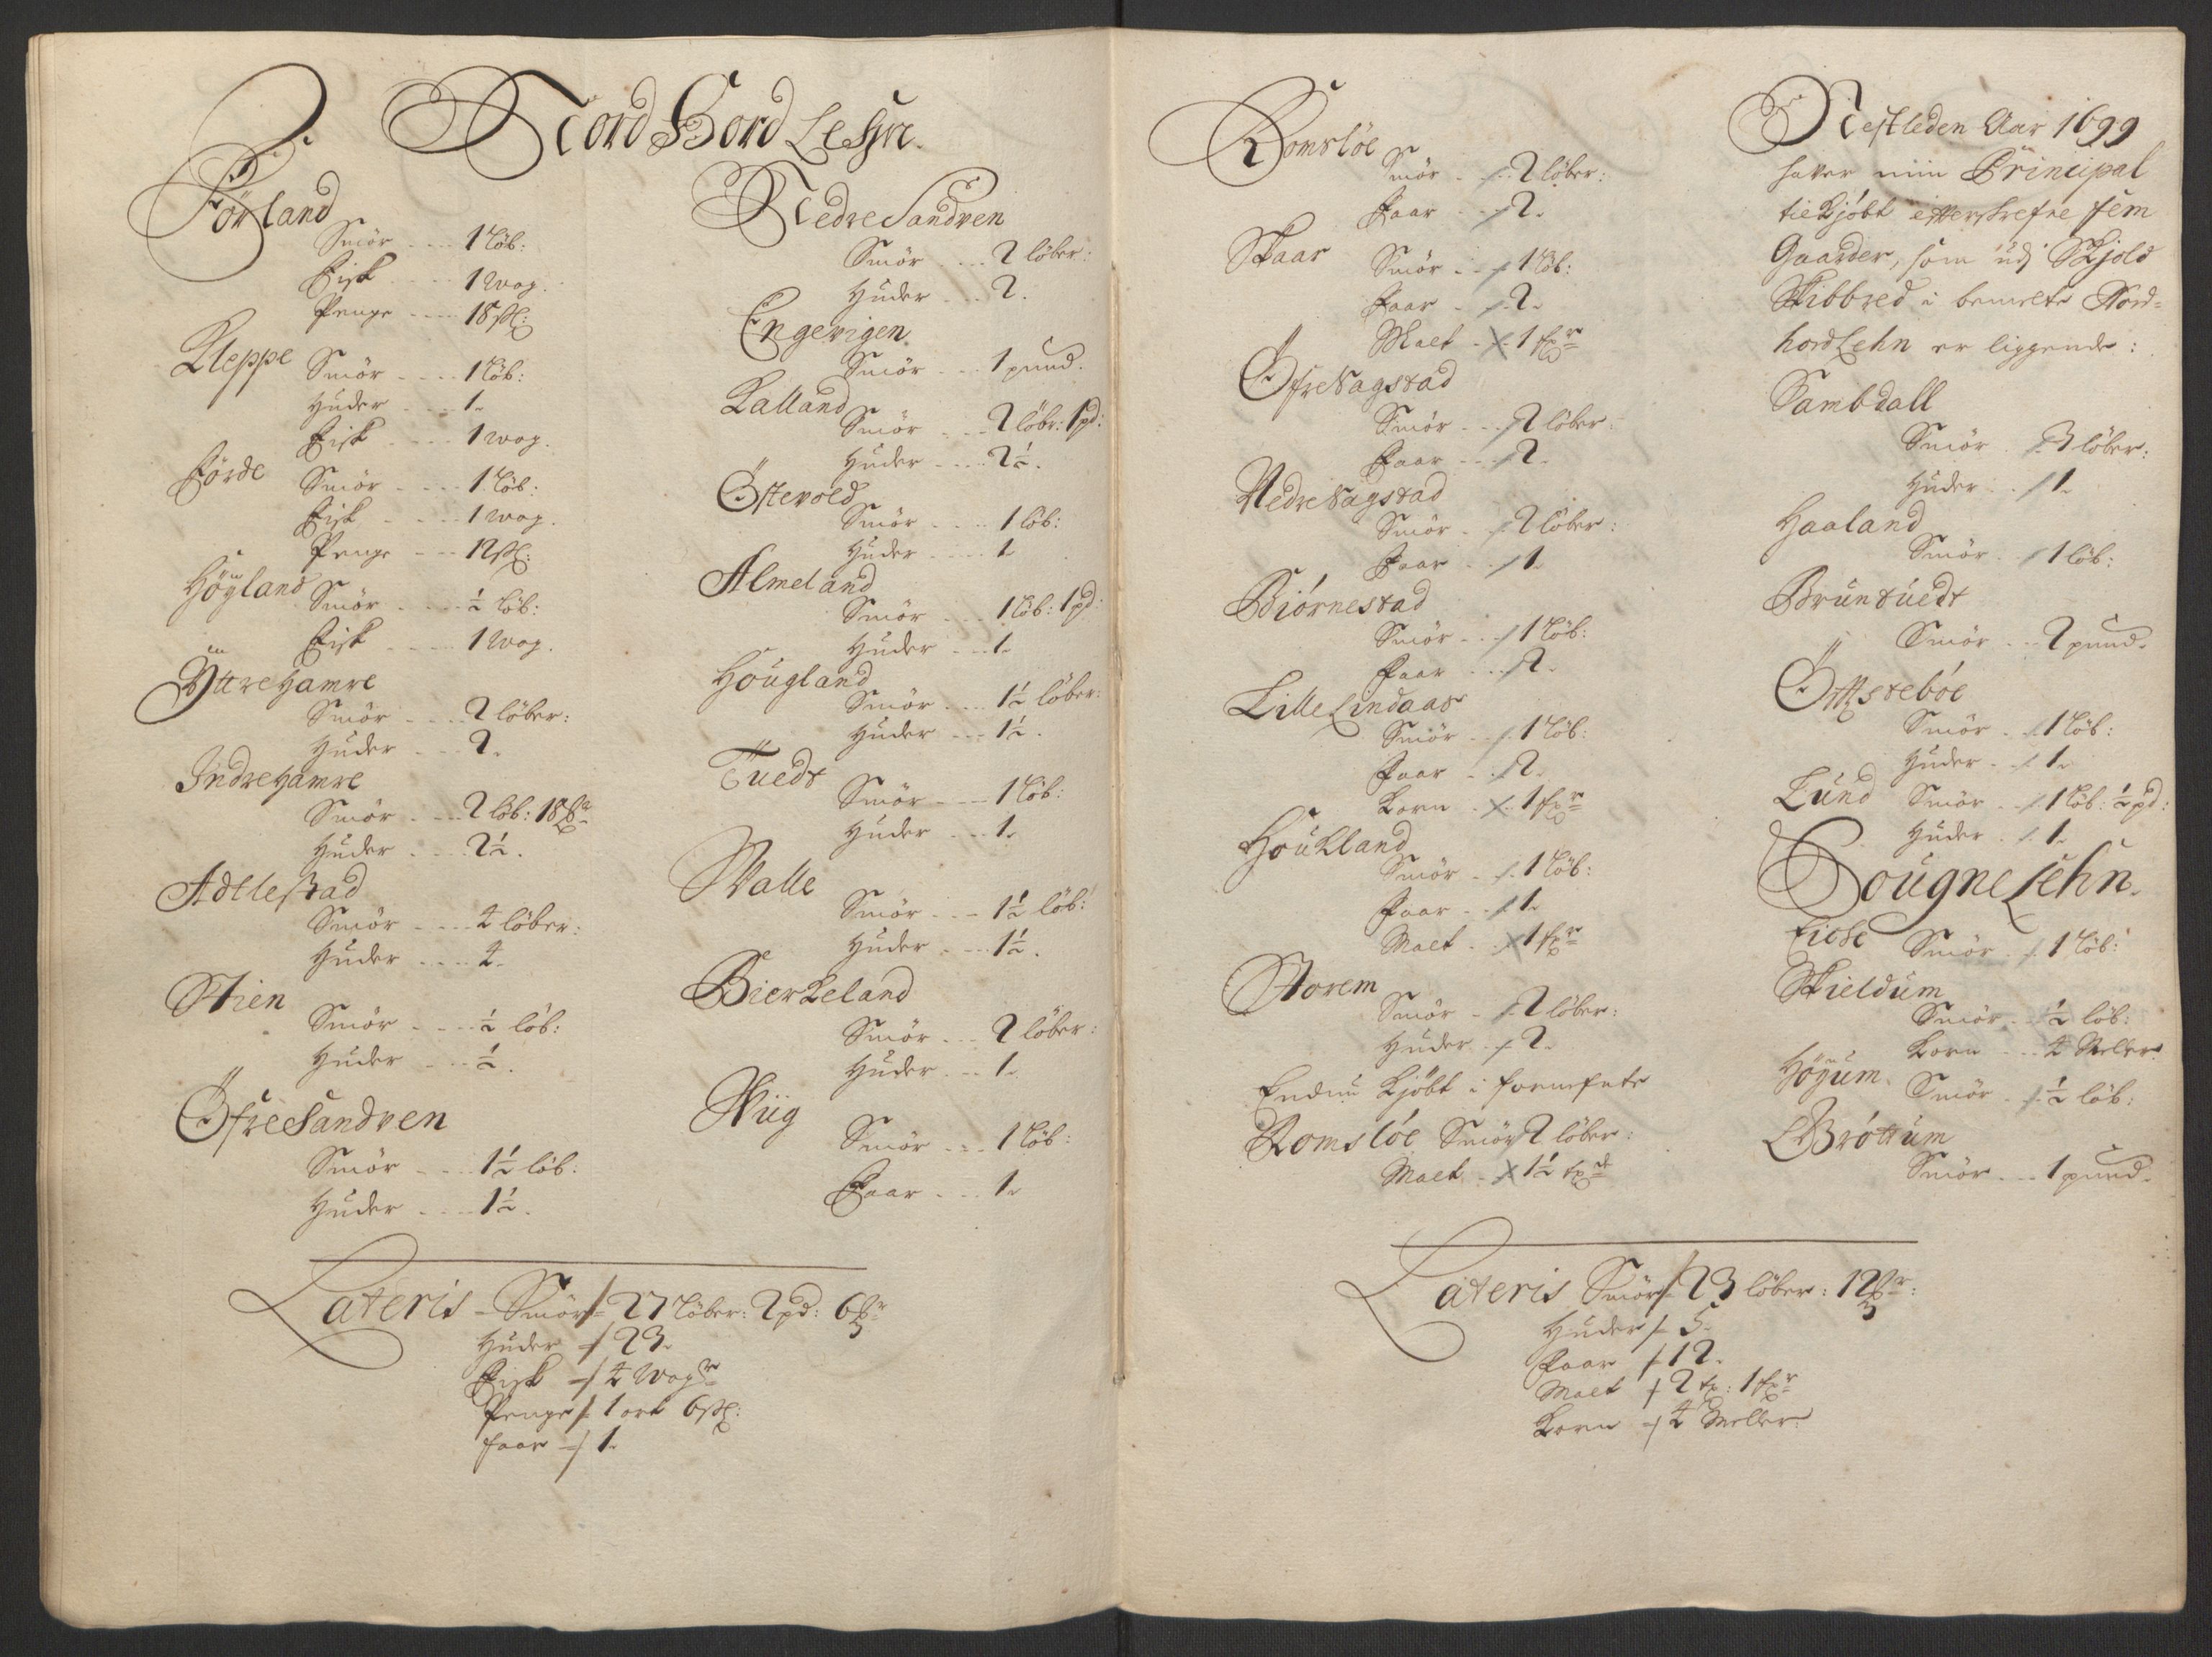 Nord Hord Lehn.
Förland
Smör - - - 1 löb:
Fisk - - - 1 wog.
Penge - - - 18 ſkl:
Kleppe
Smör - - - 1 löb:
Huder - - - 1.
Fisk - - - 1 wog.
Förde
Smör - - - 1 löb:
Fisk - - - 1 wog.
Penge - - - 12 ſkl:
Högland
Smör - - - ½ löb:
Fisk - - - 1 wog.
Yttre Hamre
Smör - - - 2 löber:
Huder - - - 2.
Indre Hamre
Smör - - - 2 löb: 18
Huder - - - 2½.
Adtlestad
Smör - - - 4 löber:
Huder - - - 4.
Stien
Smör - - - ½ löb:
Huder - - - ½.
Öfre Sandven
Smör - - - 1½ löb:
Huder - - - 1½.
Nedre Sandven
Smör - - - 2 löber:
Huder - - - 2.
Engevigen.
Smör - - - 1 pund.
Kalland
Smör - - - 2 löbr: 1 pd:
Huder - - - 2½.
Östevold
Smör - - - 1 löb:
Huder - - - 1.
Almeland
Smör - - - 1 löb: 1 pd:
Huder - - - 1.
Höugland
Smör - - - 1½ löber:
Huder - - - 1½.
Tuedt
Smör - - - 1 löb:
Huder - - - 1.
Walle
Smör - - - 1½ löb:
Huder - - - 1½.
Bierkeland
Smör - - - 2 löber:
Huder - - - 1.
Wiig
Smör - - - 1 löb:
Faar - - - 1.
Lateris - Smör 27 löber: 2 pd: 6
Huder - 23.
Fisk - 4 wog
Penge - 1 ort 6 ſkl:
Faar - 1.
Romslöe
Smör - 2 löber:
Faar - 2.
Skaar
Smör - 1 löb:
Faar - 2.
Malt - 1
Öfre Vagstad
Smör - 2 löber:
Faar - 2.
Nedre Vagstad
Smör - 2 löber:
Faar - 1.
Biörnestad
Smör - 1 löb:
Faar - 2.
Lille Lindaas
Smör - 1 löb:
Faar - 2.
Korn - 1
Höukland
Smör - 1 löb:
Faar - 1.
Malt - 1
Storem
Smör - 2 löber:
Huder - 2.
Endnu Kjöbt i fornefnte
Romslöe Smör 2 löber:
Malt - 1½
Nestleden Aar 1699
haver min Principal
tiekjöbt efterskrefne fem
Gaarder, som udj Skjold
Skibbred i bemelte Nord-
hord Lehn er liggende:
Sambdall
Smör - 3 löber:
Huder - 1.
Haaland
Smör - 1 löb:
Bruntuedt
Smör - - 2 pund.
Öttstebóe
Smör - 1 löb:
Huder - 1.
Lund Smör - 1 löb: ½ pd:
Huder - 1.
Sougne Lehn.
Smör - 1 löb:
Skieldum
Smör - ½ löb:
Korn - - 4 Meller.
Högum
Smör - ½ löb:
Bröttum
Smör - - 1 pund.
Lateris Smör 23 löber: 12
Huder - 5.
Faar - 12.
Malt - 2 1
Korn - 4 Meller.